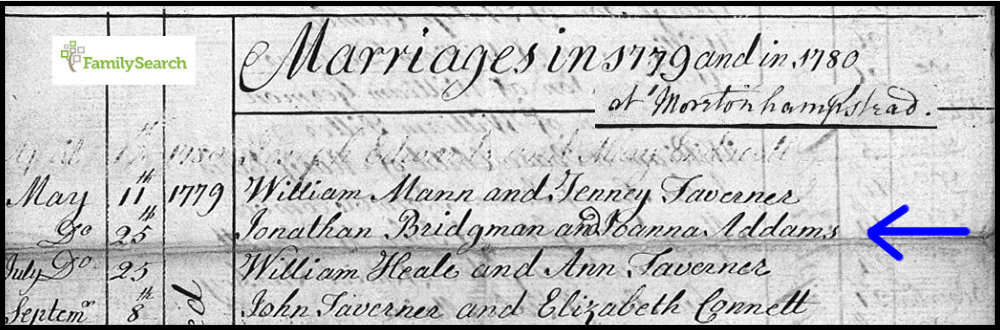 FamilySearch
Marriages in 1779 and in 1780
at Moretonhampstead.
April 1780 and
May 11th 1779 William Mann and Jenney Taverner
Do 25th Jonathan Bridgman and Joanna Addams
July Do 25 William Heale and Ann Taverner
Septemr 8th John Taverner and Elizabeth Connett